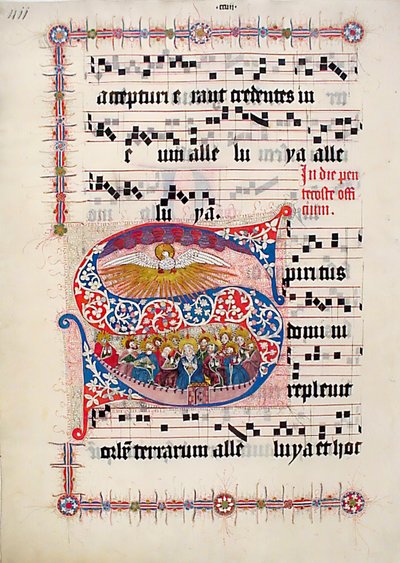 411
·ccvii·
accepturi e rant credentes in
e um alle lu ya alle
lu ya.
In die pen
tecoste offi
cium.
Spiritus
domi ni
repleuit
orbē terrarum alle luya et hoc